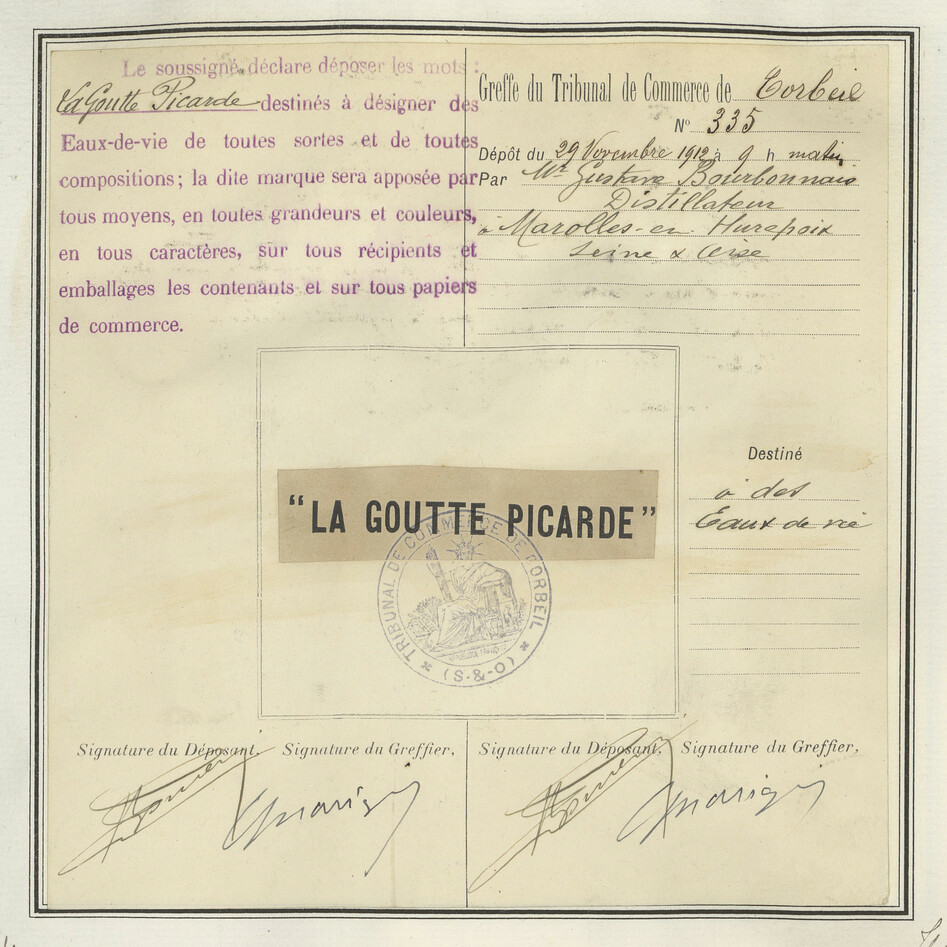 Le soussigné, déclare déposer les mots :
La Goutte Picarde destinés à désigner des
Eaux-de-vie de toutes sortes et de toutes
compositions ; la dite marque sera apposée par
tous moyens, en toutes grandeurs et couleurs,
en tous caractères, sur tous récipients et
emballages les contenants et sur tous papiers
de commerce.
Greffe du Tribunal de Commerce de Corbeil
N° 335
Dépôt du 29 Novembre 1912 à 9 h matin
Par Mr Gustave Bourbonnais
Distillateur
à Marolles-en-Hurepoix
Seine & Oise
"LA GOUTTE PICARDE"
TRIBUNAL DE COMMERCE DE CORBEIL
(S.-&-O)
Destiné
à des
Eaux de vie
Signature du Déposant, Signature du Greffier,
Signature du Déposant, Signature du Greffier,